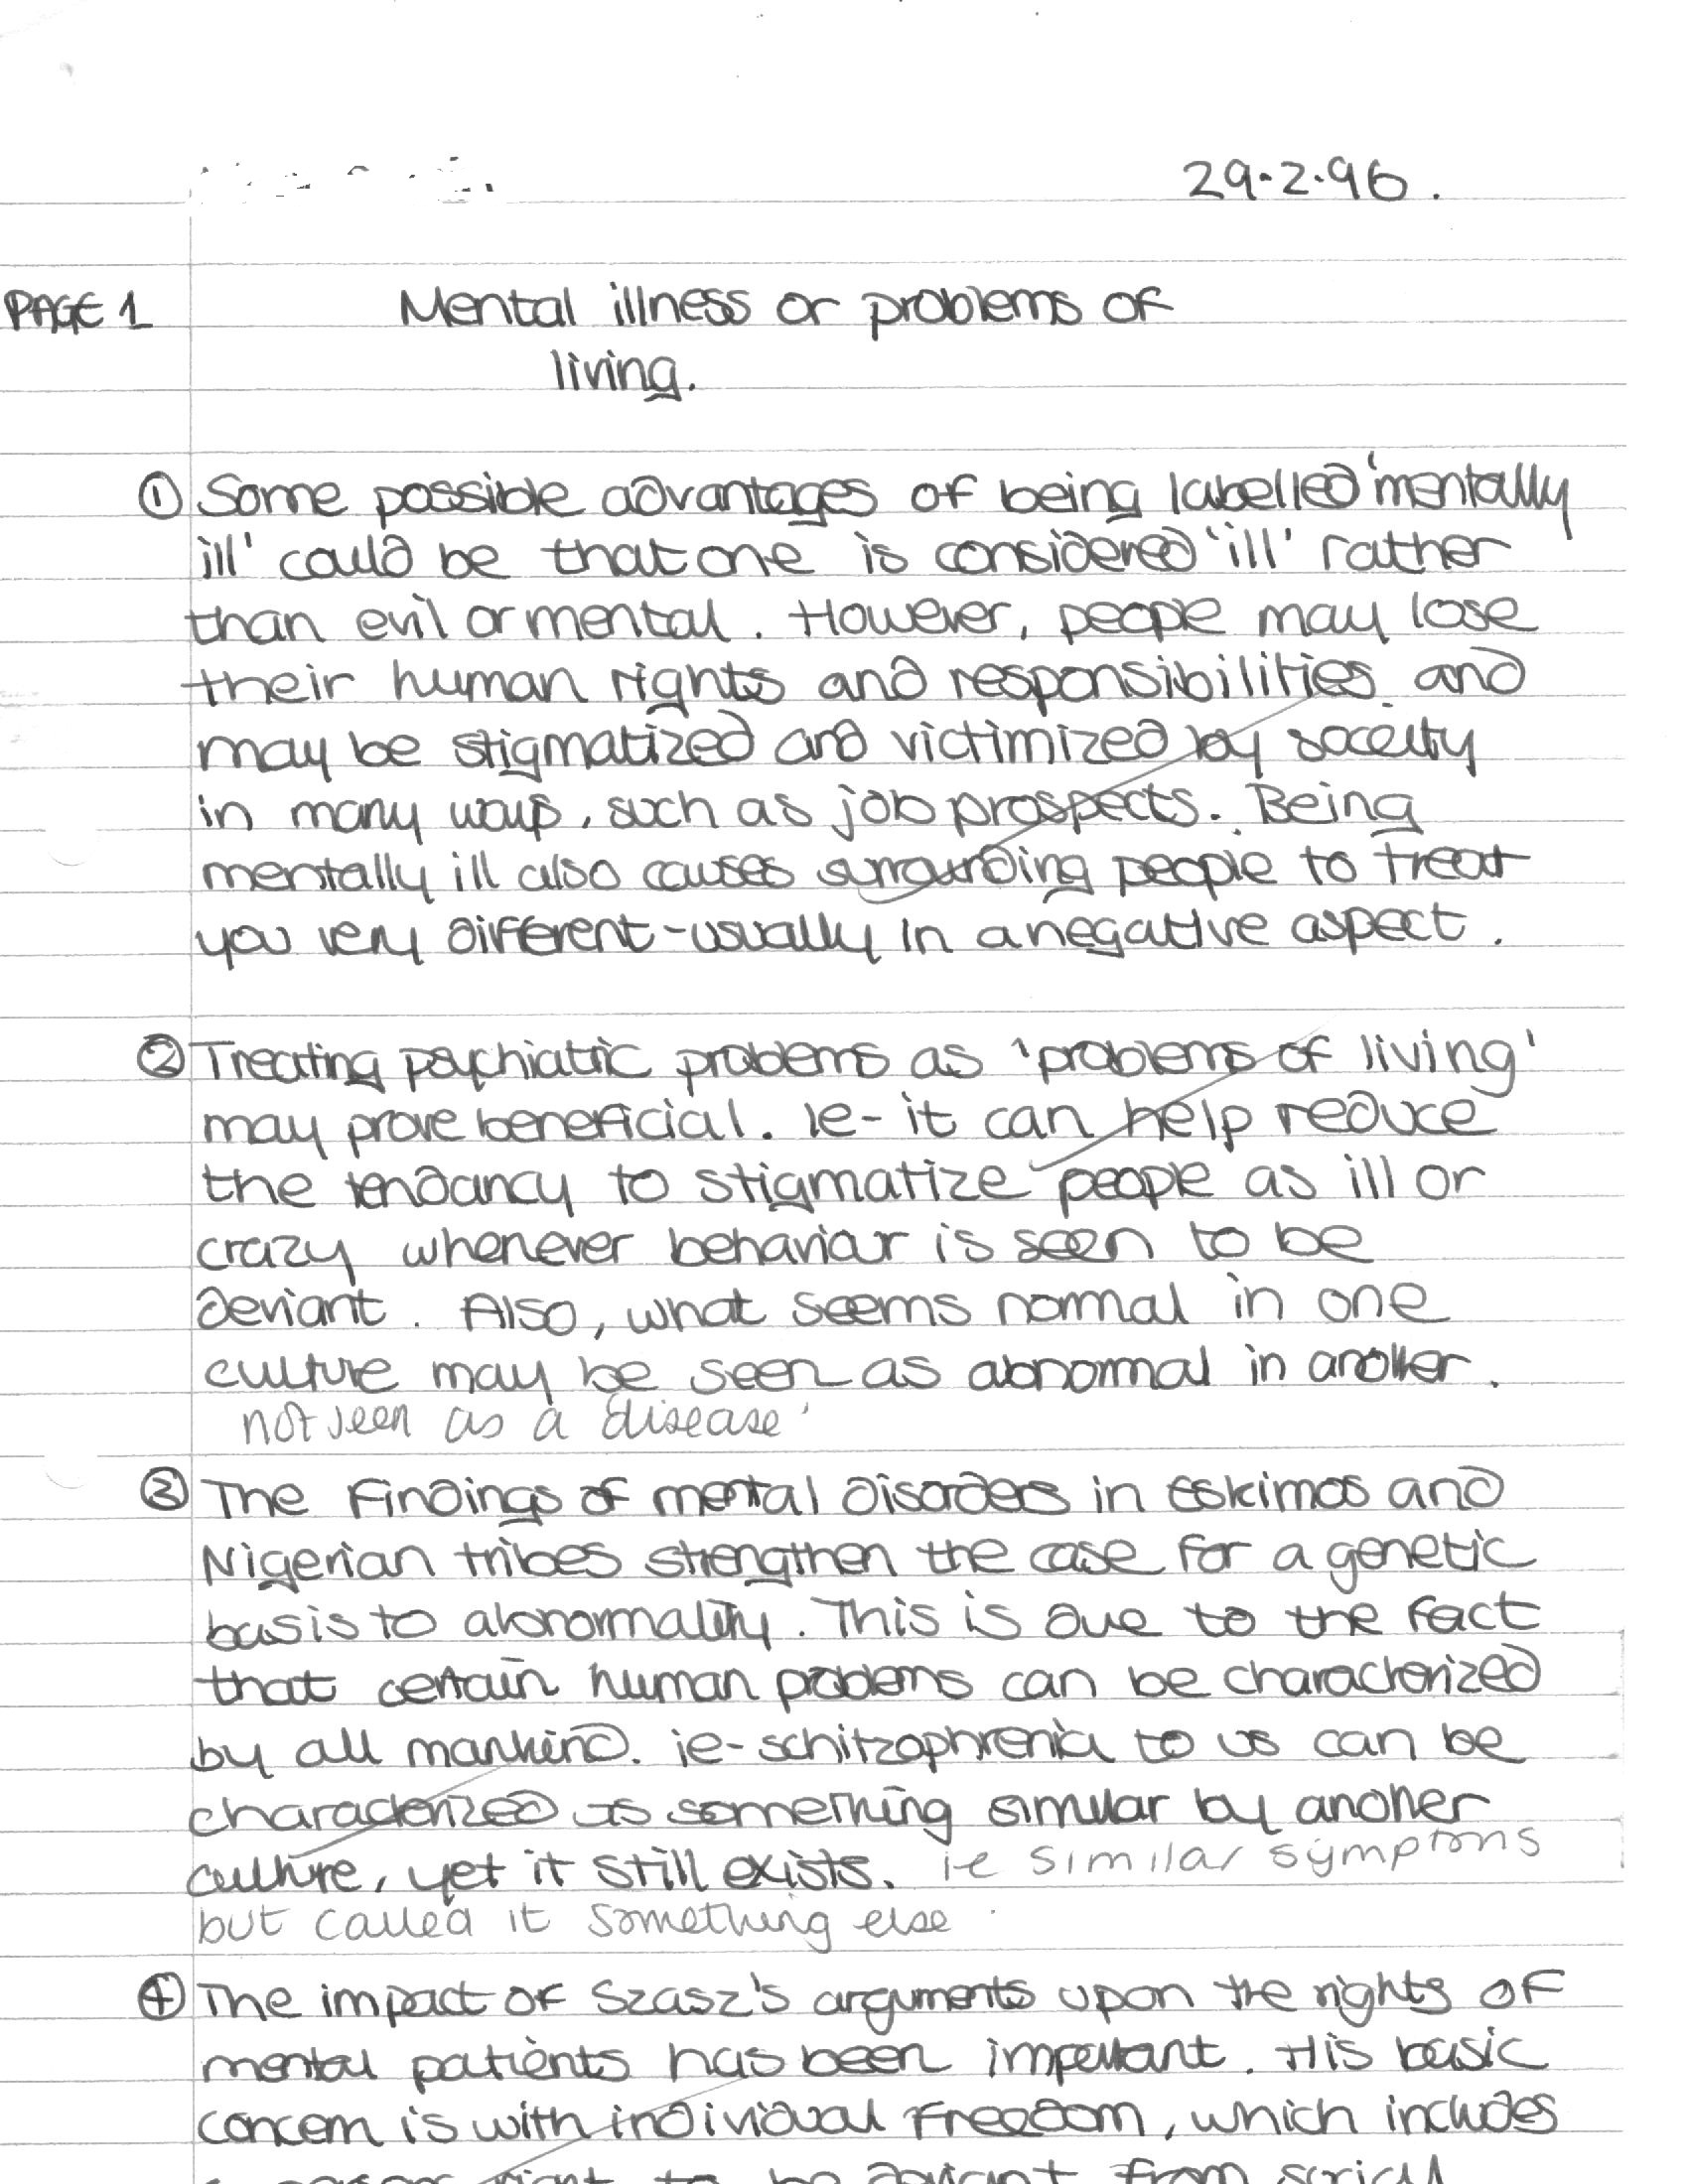 29.2.96.
PAGE 1
Mental illness or problems of
living.
① Some possible advantages of being labelled 'mentally
ill' could be that one is considered 'ill' rather
than evil or mental. However, people may lose
their human rights and responsibilities and
may be stigmatized and victimized by socelty
in many ways, such as job prospects. Being
mentally ill also causes surrounding people to treat
you very different - usually in a negative aspect.
② Treating psychiatric problems as 'problems of living'
may prove beneficial. Ie - it can help reduce
the tendancy to stigmatize people as ill or
crazy whenever behaviar is seen to be
deviant. Also, what seems normal in one
culture may be seen as abnormal in another.
not seen as a 'disease'
③ The findings of mental disorders in Eskimos and
Nigerian tribes strengthen the case for a genetic
basis to abnormality. This is due to the fact
that certain human problems can be characterized
by all mankind. ie - schitzophrenia to us can be
characterized as something similar by another
culture, yet it still exists. ie similar symptoms
but called it something else
④ The impact of Szasz's arguments upon the rights of
mental patients has been important. His basic
concern is with individual freedom, which includes
right to be deviant from social